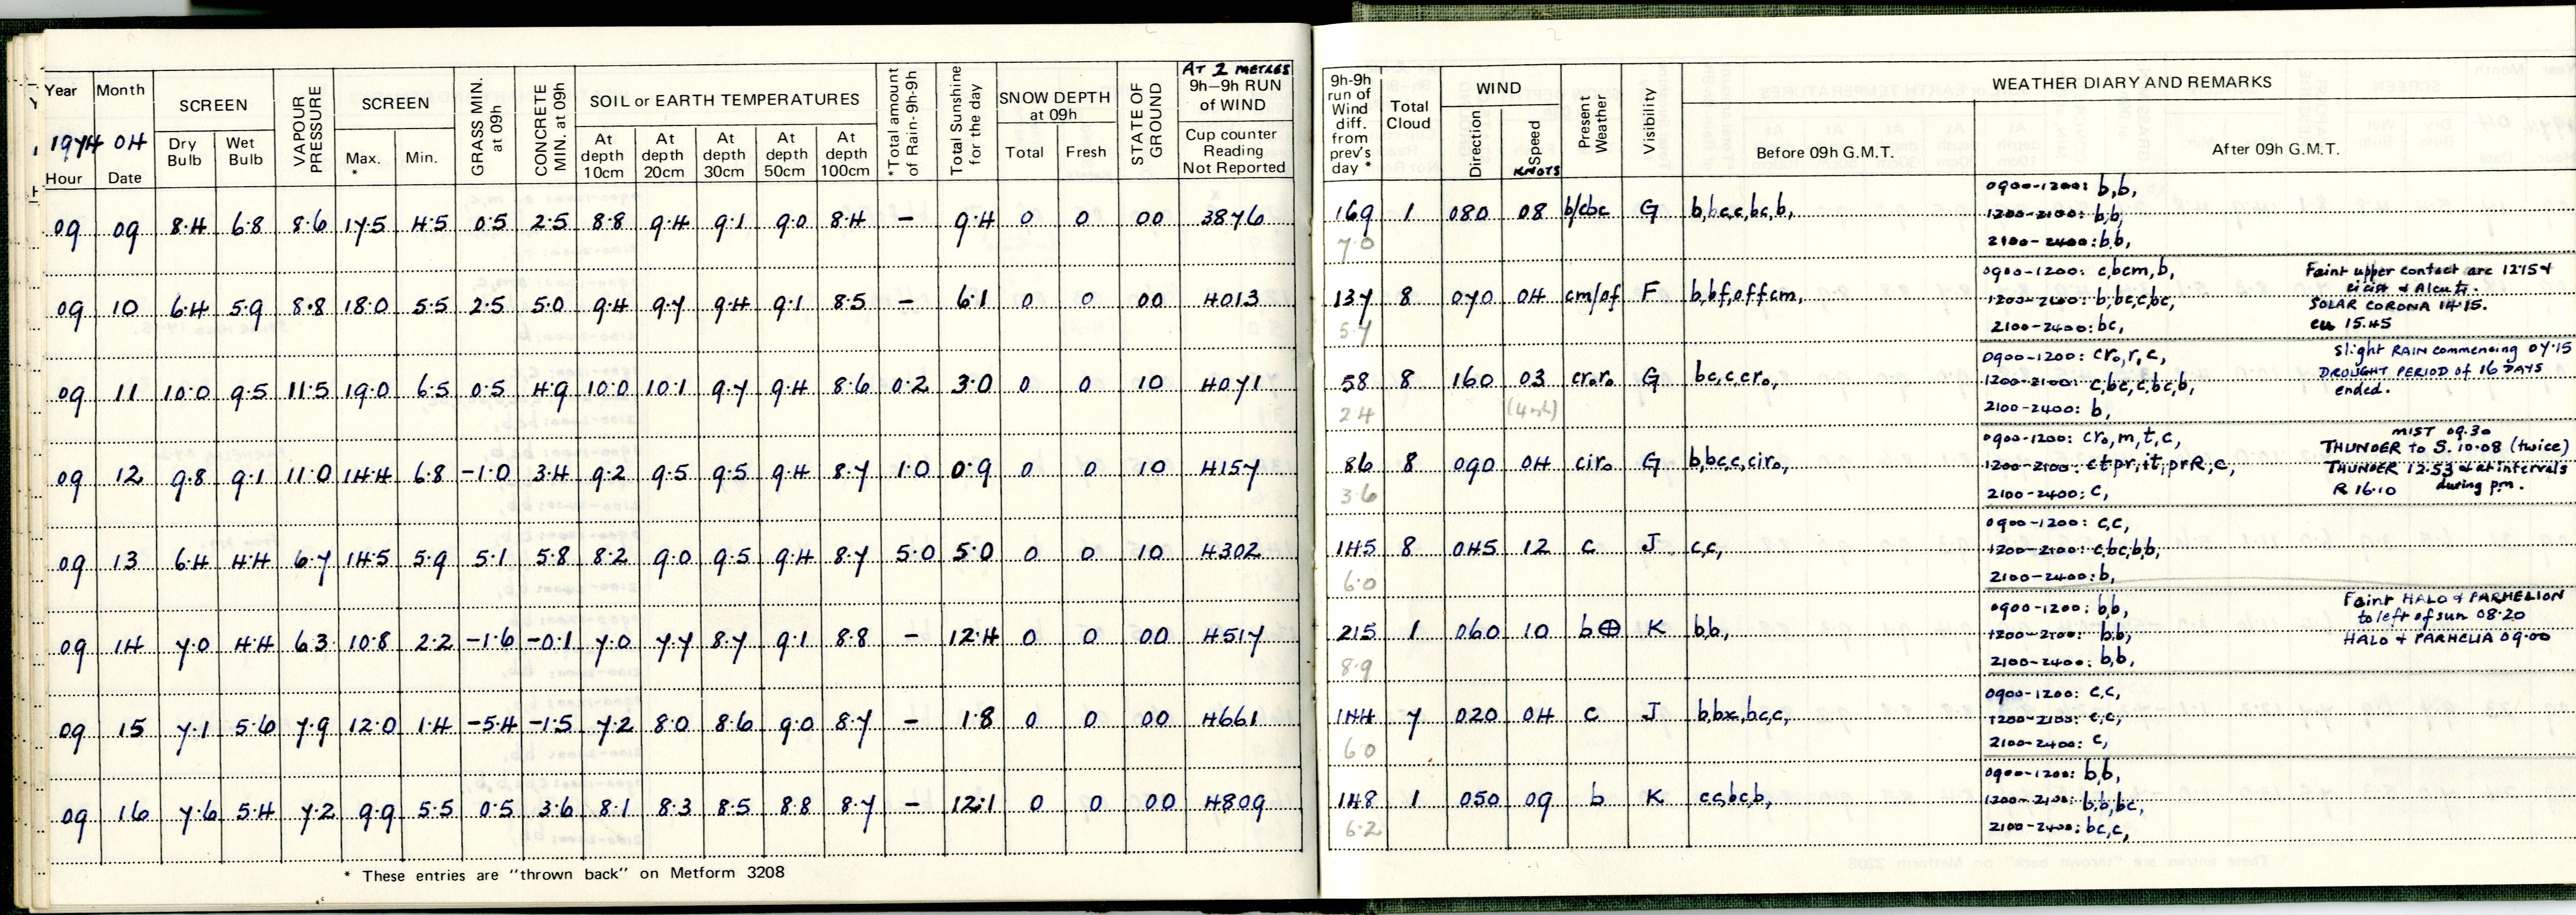 Year Month SCREEN VAPOUR PRESSURE SCREEN GRASS MIN. at 09h CONCRETE MIN. at 09h SOIL or EARTH TEMPERATURES *Total amount of Rain-9h-9h Total Sunshine for the day SNOW DEPTH at 09h STATE OF GROUND AT 2 METRES 9h–9h RUN of WIND
1974 04 Dry Bulb Wet Bulb Max. * Min. At depth 10cm At depth 20cm At depth 30cm At depth 50cm At depth 100cm Total Fresh Cup counter Reading Not Reported
Hour Date
09 09 8.4 6.8 8.6 17.5 4.5 0.5 2.5 8.8 9.4 9.1 9.0 8.4 – 9.4 0 0 00 3876
09 10 6.4 5.9 8.8 18.0 5.5 2.5 5.0 9.4 9.7 9.4 9.1 8.5 – 6.1 0 0 00 4013
09 11 10.0 9.5 11.5 19.0 6.5 0.5 4.9 10.0 10.1 9.7 9.4 8.6 0.2 3.0 0 0 10 4071
09 12 9.8 9.1 11.0 14.4 6.8 -1.0 3.4 9.2 9.5 9.5 9.4 8.7 1.0 0.9 0 0 10 4157
09 13 6.4 4.4 6.7 14.5 5.9 5.1 5.8 8.2 9.0 9.5 9.4 8.7 5.0 5.0 0 0 10 4302
09 14 7.0 4.4 6.3 10.8 2.2 -1.6 -0.1 7.0 7.7 8.7 9.1 8.8 – 12.4 0 0 00 4517
09 15 7.1 5.6 7.9 12.0 1.4 -5.4 -1.5 7.2 8.0 8.6 9.0 8.7 – 1.8 0 0 00 4661
09 16 7.6 5.4 7.2 9.9 5.5 0.5 3.6 8.1 8.3 8.5 8.8 8.7 – 12.1 0 0 00 4809
* These entries are "thrown back" on Metform 3208
9h-9h run of Wind diff. from prev's day * Total Cloud WIND Present Weather Visibility WEATHER DIARY AND REMARKS
Direction Speed KNOTS Before 09h G.M.T. After 09h G.M.T.
0900-1200: b,b,
169 1 080 08 b/cbc G b,bc,c,bc,b, 1200-2100: b,b,
7.0 2100-2400: b,b,
0900-1200: c,bcm,b, Faint upper contact arc 1215 &
137 8 070 04 cm/of F b,bf,offcm, 1200-2100: b,bc,c,bc, SOLAR CORONA 14.15.
5.7 2100-2400: bc, cu 15.45
0900-1200: cr₀,r,c, Slight RAIN commencing 07.15
58 8 160 03 cr₀r₀ G bc,c,cr₀, 1200-2100: c,bc,c,bc,b, DROUGHT PERIOD of 16 DAYS ended.
2.4 2100-2400: b,
0900-1200: cr₀,m,t,c, MIST 09.30
THUNDER to S. 10.08 (twice)
86 8 090 04 cir₀ G b,bc,c,cir₀, 1200-2100: ctpr,it,prR,c, THUNDER 12.53 & at intervals during pm.
3.6 2100-2400: c, R 16.10
0900-1200: c,c,
145 8 045 12 c J c,c, 1200-2100: c,bc,b,b,
6.0 2100-2400: b,
0900-1200: b,b, Faint HALO & PARHELION
to left of sun 08.20
215 1 060 10 b⊕ K b,b, 1200-2100: b,b, HALO & PARHELIA 09.00
8.9 2100-2400: b,b,
0900-1200: c,c,
144 7 020 04 c J b,bx,bc,c, 1200-2100: c,c,
6.0 2100-2400: c,
0900-1200: b,b,
148 1 050 09 b K c,c,bc,b, 1200-2100: b,b,bc,
6.2 2100-2400: bc,c,